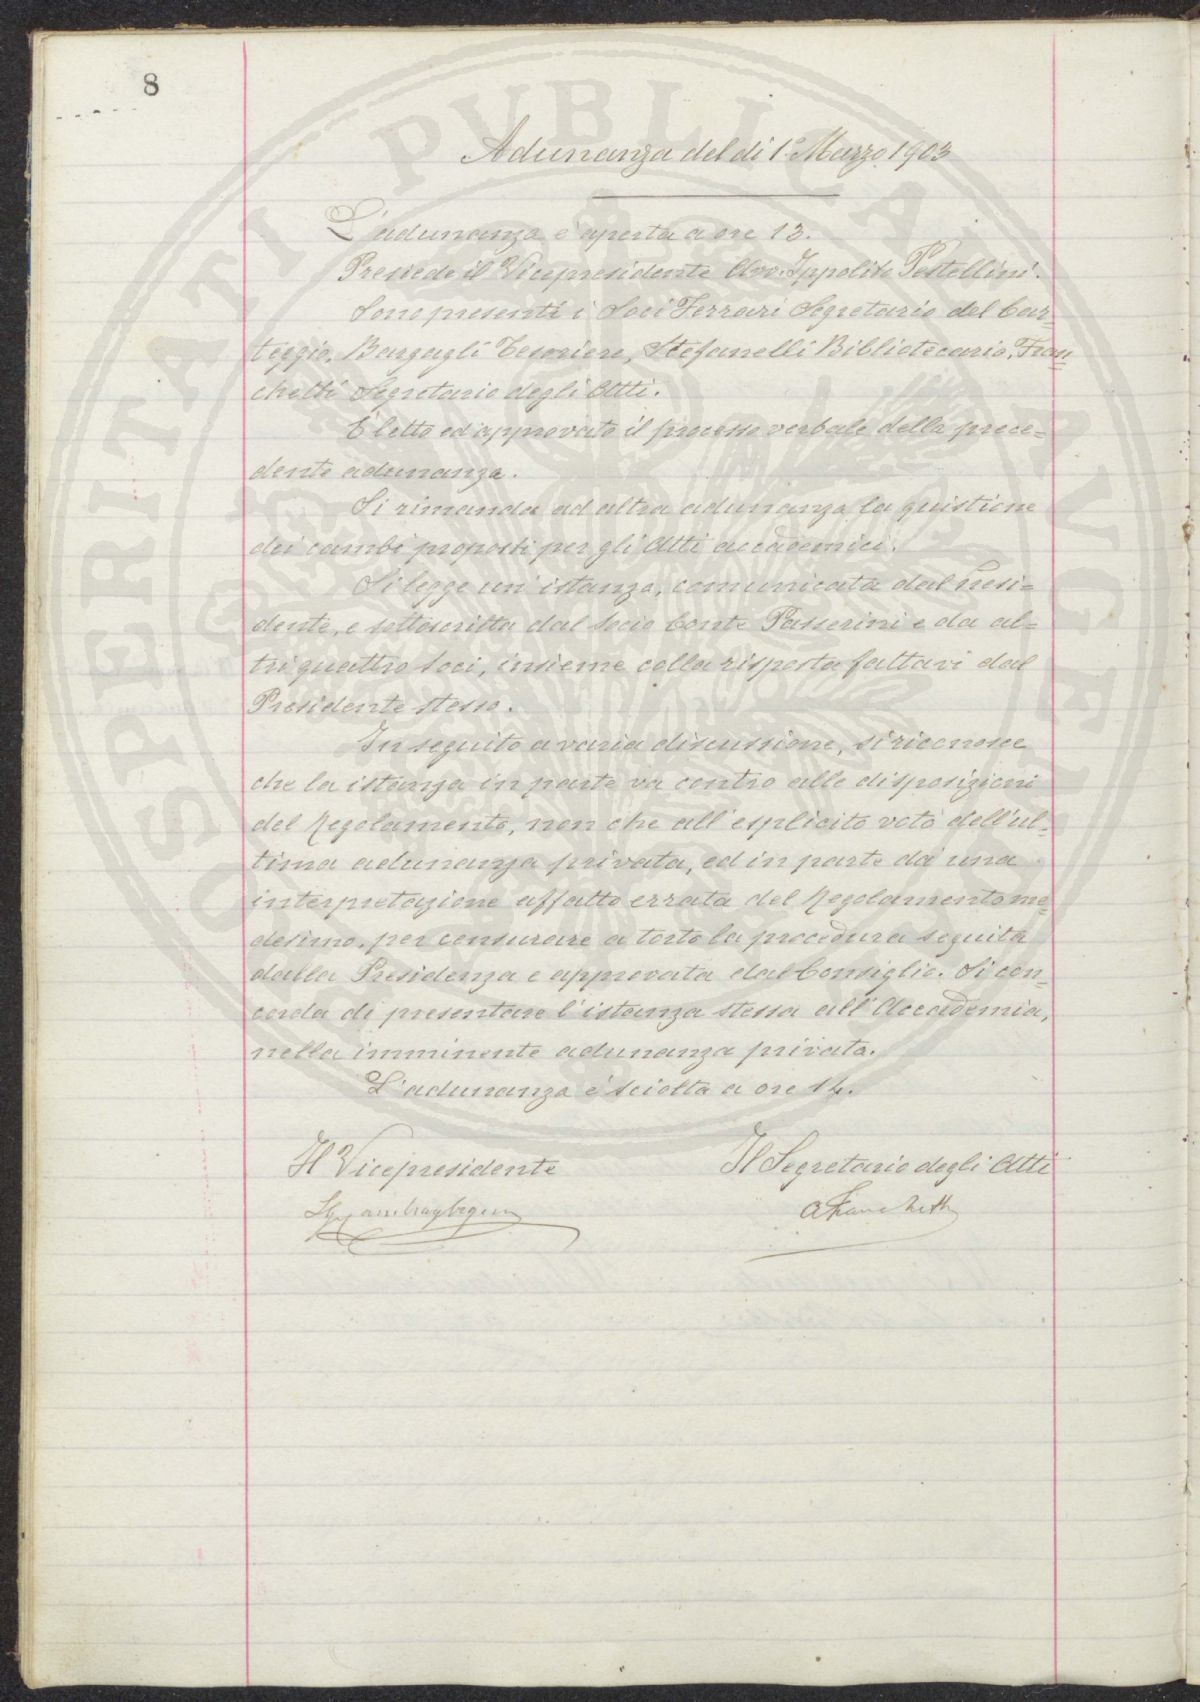 8
Adunanza del dì 1° Marzo 1903
L'adunanza è aperta a ore 13.
Presiede il Vicepresidente Avv. Ippolito Pestellini.
Sono presenti i Soci Ferrari Segretario del Car-
teggio, Bargagli Tesoriere, Stefanelli Bibliotecario, Fran-
chetti Segretario degli Atti.
È letto ed approvato il processo verbale della prece-
dente adunanza.
Si rimanda ad altra adunanza la quistione
dei cambi proposti per gli Atti accademici.
Si legge un'istanza, comunicata dal Presi-
dente, e sottoscritta dal socio Conte Passerini e da al-
tri quattro soci, insieme colla risposta fattavi dal
Presidente stesso.
In seguito a varia discussione, si riconosce
che la istanza in parte va contro alle disposizioni
del Regolamento, non che all'esplicito voto dell'ul-
tima adunanza privata, ed in parte dà una
interpretazione affatto errata del Regolamento me-
desimo, per censurare a torto la procedura seguita
dalla Presidenza e approvata dal Consiglio. Si con-
corda di presentare l'istanza stessa all'Accademia,
nella imminente adunanza privata.
L'adunanza è sciolta a ore 14.
Il Vicepresidente
Il Segretario degli Atti
A Franchetti
PROSPERITATI PVBLICAE AVGENDAE